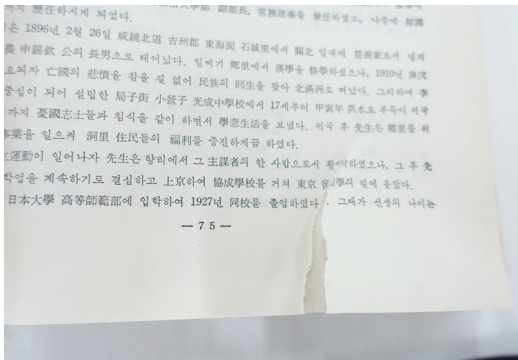 館長, 常務理事를 兼任하셨고, 나중에 財團
歷任하시게 되었다.
은 1896년 2월 26일 咸鏡北道 吉州郡 東海面 石城里에서 關北 일대에 慈善家로서 명패
申錫欽 公의 長男으로 태어났다. 일찌기 鄕里에서 漢學을 修學하셨으나, 1910년 庚戌
되자 亡國의 悲憤을 참을 길 없어 民族의 回生을 찾아 北滿洲로 떠났다. 그리하여 李
중심이 되어 설립한 局子街 小營子 光成中學校에서 17세부터 甲寅年 洪水로 부득이 귀국
까지 憂國志士들과 침식을 같이 하면서 學窓生活을 보냈다. 귀국 후 先生은 鄕里를 위
事業을 일으켜 洞里 住民들의 福利를 증진하게끔 하였다.
運動이 일어나자 先生은 향리에서 그 主謀者의 한 사람으로서 활약하였으나, 그 후 先
학업을 계속하기로 결심하고 上京하여 協成學校를 거쳐 東京 學의 길에 올랐다.
日本大學 高等師範部에 입학하여 1927년 同校를 졸업하였다. 그때가 선생의 나이는
— 75 —